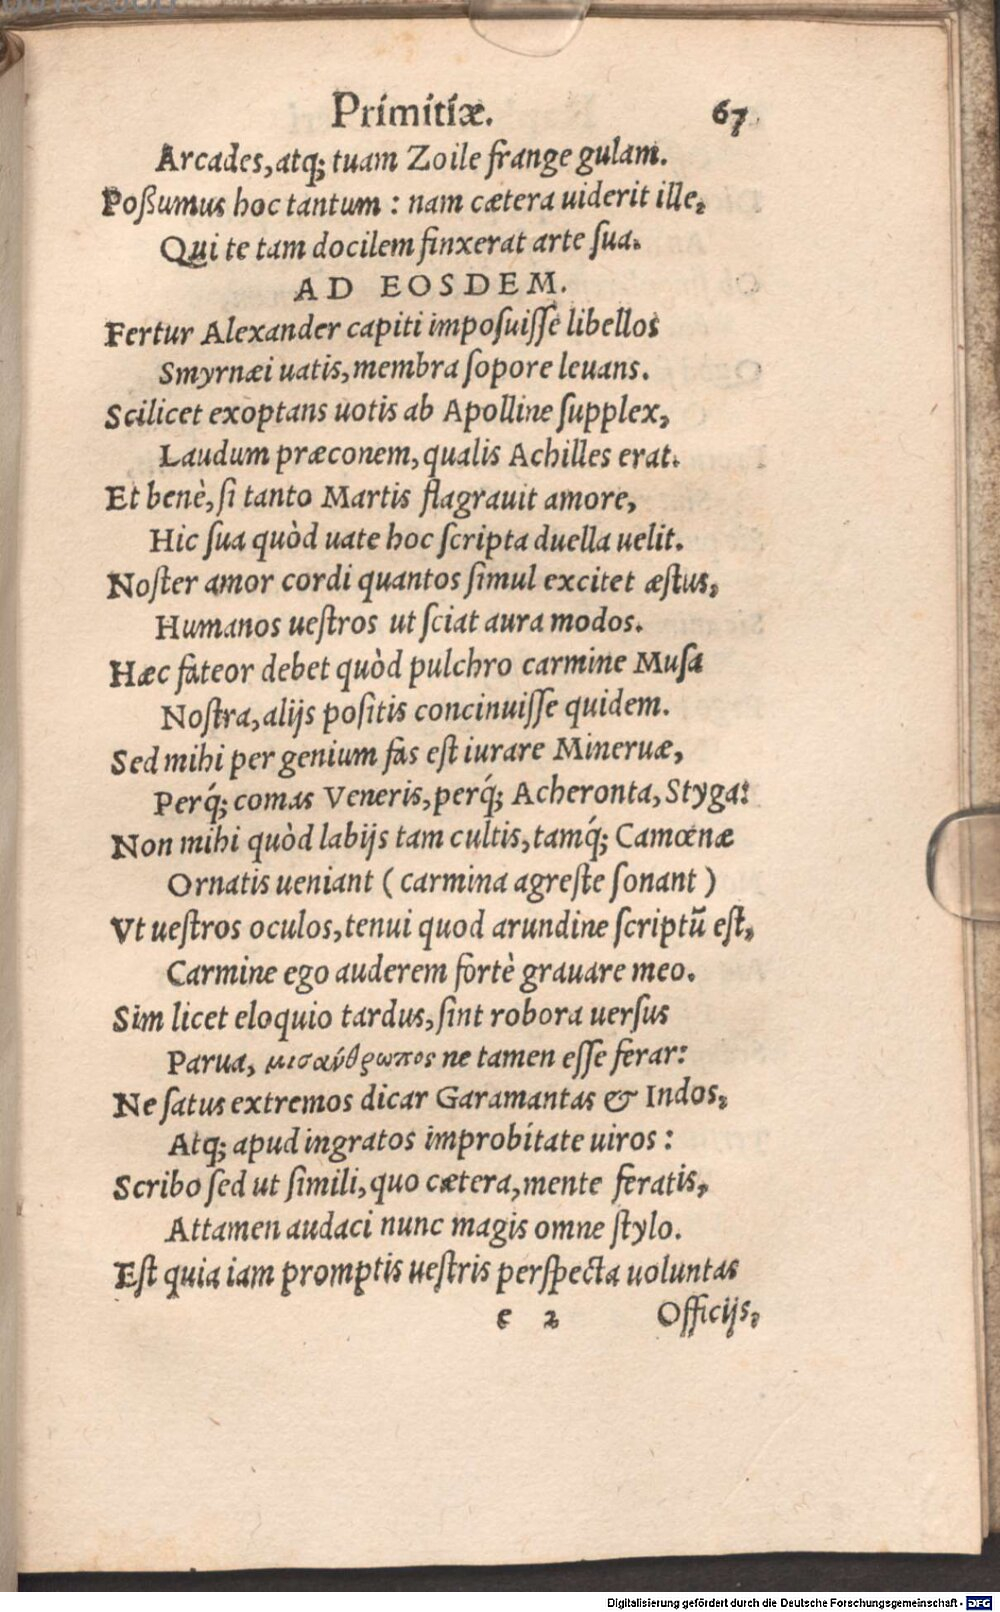 Primitiæ. 67
Arcades, atq; tuam Zoile frange gulam.
Poßumus hoc tantum : nam cætera uiderit ille,
Qui te tam docilem finxerat arte sua.
AD EOSDEM.
Fertur Alexander capiti imposuiſſe libellos
Smyrnæi uatis, membra ſopore leuans.
Scilicet exoptans uotis ab Apolline ſupplex,
Laudum præconem, qualis Achilles erat.
Et benè, ſi tanto Martis flagrauit amore,
Hic ſua quòd uate hoc ſcripta duella uelit.
Noſter amor cordi quantos ſimul excitet æſtus,
Humanos ueſtros ut ſciat aura modos.
Hæc fateor debet quòd pulchro carmine Muſa
Noſtra, alijs poſitis concinuiſſe quidem.
Sed mihi per genium fas eſt iurare Mineruæ,
Perq́; comas Veneris, perq́; Acheronta, Styga:
Non mihi quòd labijs tam cultis, tamq́; Camœnæ
Ornatis ueniant ( carmina agreſte ſonant )
Vt ueſtros oculos, tenui quod arundine ſcriptũ eſt,
Carmine ego auderem fortè grauare meo.
Sim licet eloquio tardus, ſint robora uerſus
Parua, μισάνθρωπος ne tamen eſſe ferar:
Ne ſatus extremos dicar Garamantas & Indos,
Atq; apud ingratos improbitate uiros :
Scribo ſed ut ſimili, quo cætera, mente feratis,
Attamen audaci nunc magis omne ſtylo.
Eſt quia iam promptis ueſtris perſpecta uoluntas
e 2 Officijs,
Digitalisierung gefördert durch die Deutsche Forschungsgemeinschaft - DFG